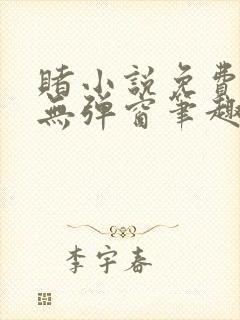 賭小說免費
無彈窗筆趣
李宇春